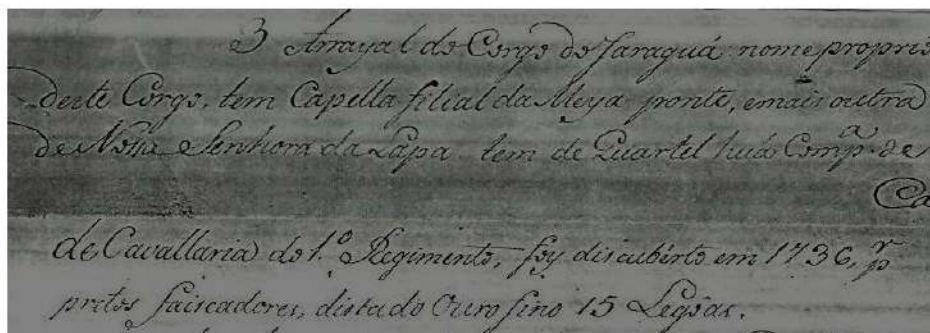 3 Arrayal do Corgo do Jaraguá nome proprio
deste Corgo, tem Capella filial da Meya ponte, emais outra
de Nossa Senhora da Lapa. tem de Quartel huã Comp.ª de
Ca
de Cavallaria do 1.º Regimento, foy discuberto em 1736, p.r
pretos faiscadores, dista do Ouro fino 15 Legoas.